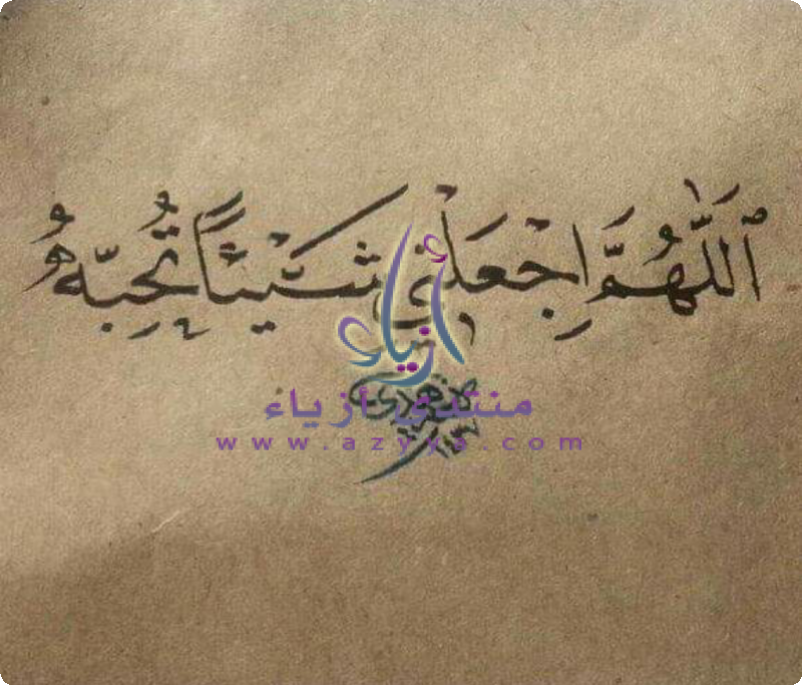 ٱللَّهُمَّ اِجْعَلْنِي شَيْئاً تُحِبّهُ
أزياء
منتدى أزياء
www.azyya.com